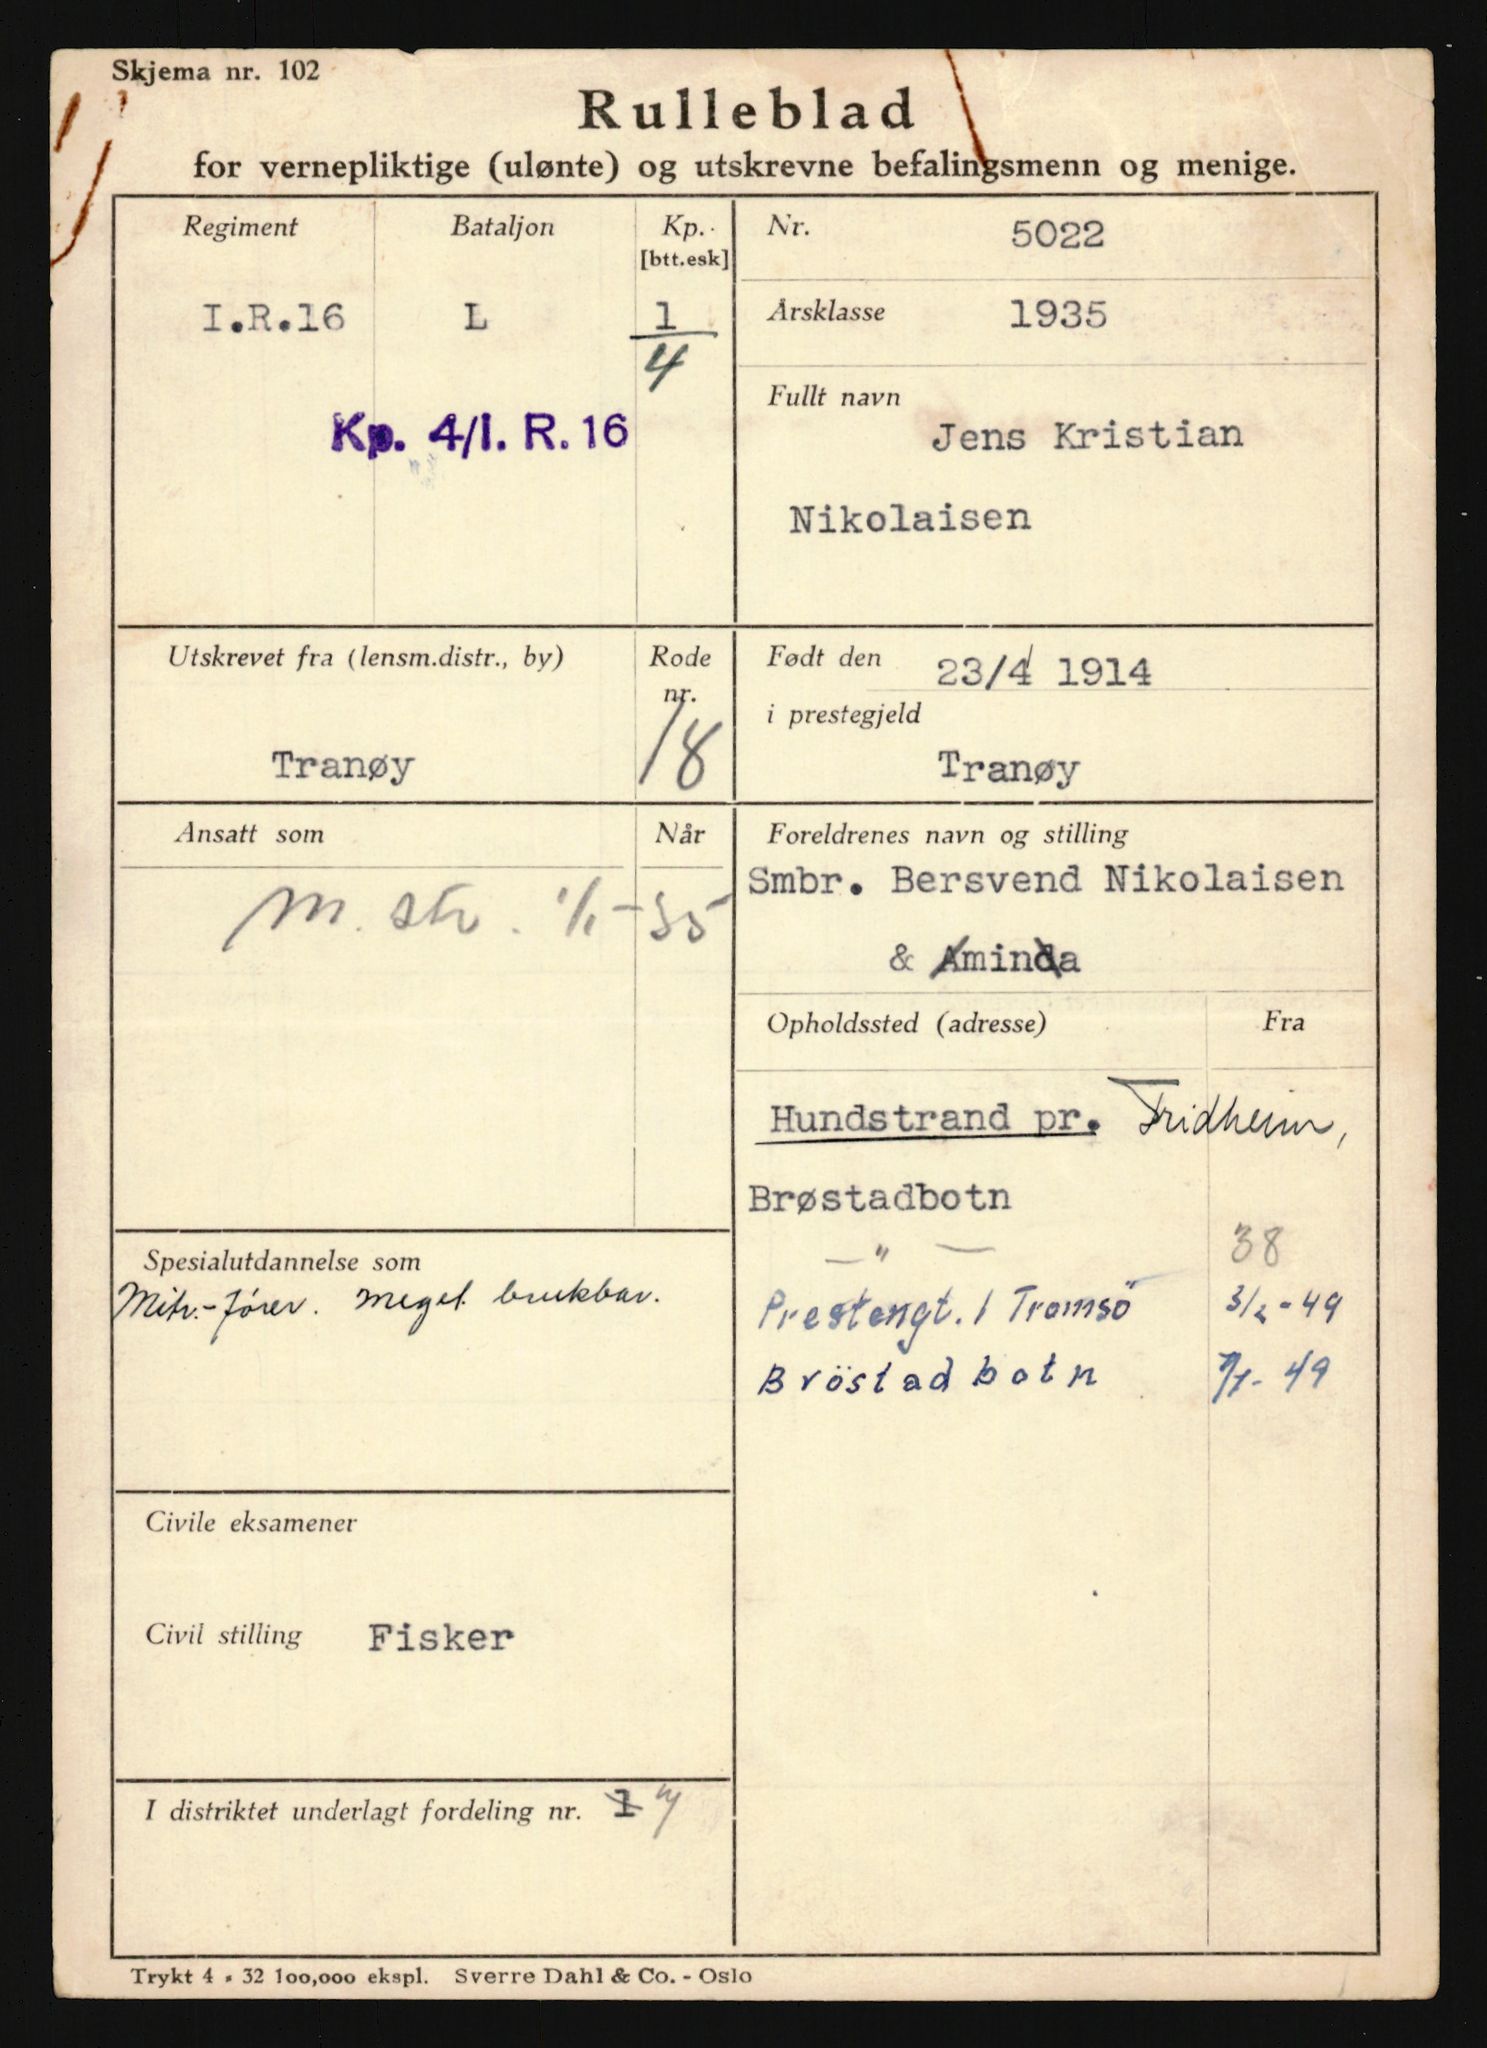 Skjema nr. 102
Rulleblad
for vernepliktige (ulønte) og utskrevne befalingsmenn og menige.
Regiment Bataljon Kp. [btt.esk]
I.R.16 L 1
4
Kp. 4/I. R. 16
Nr. 5022
Årsklasse 1935
Fullt navn
Jens Kristian
Nikolaisen
Utskrevet fra (lensm.distr., by) Rode nr.
Tranøy 18
Født den 23/4 1914
i prestegjeld
Tranøy
Ansatt som Når
M. str. 1/1-35
Foreldrenes navn og stilling
Smbr. Bersvend Nikolaisen
& Aminda
Opholdssted (adresse) Fra
Hundstrand pr. Fridheim,
Brøstadbotn
— " — 38
Prestengt. 1 Tromsö 3/2-49
Bröstadbotn 7/7-49
Spesialutdannelse som
Mitr.-fører. Meget brukbar.
Civile eksamener
Civil stilling Fisker
I distriktet underlagt fordeling nr. 1 7
Trykt 4 - 32 100,000 ekspl. Sverre Dahl & Co. - Oslo